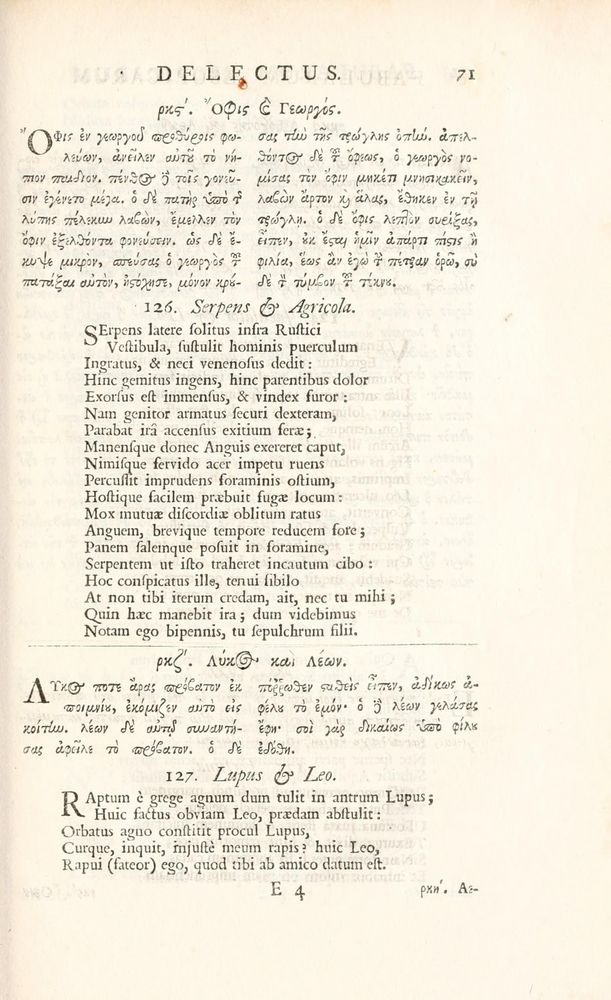 DELECTUS. 71
ρκϛʹ. Ὄφις ϗ Γεωργός.
Ὄφις ἐν γεωργοῦ προθύροις φω-
λεύων, ἀνεῖλεν αὐτοῦ τὸ νή-
πιον παιδίον. πένθος ἢ τοῖς γονεῦ-
σιν ἐγένετο μέγα. ὁ δὲ πατὴρ ὑπὸ τ῀
λύπης πέλεκυν λαβὼν, ἔμελλεν τὸν
ὄφιν ἐξελθόντα φονεύσειν. ὡς δὲ ἔ-
κυψε μικρὸν, σπεύσας ὁ γεωργὸς τ῀
πατάξαι αὐτὸν, ἠστόχησε, μόνον κρύ-
σας τὴν τῆς τρώγλης ὀπήν. ἀπελ-
θόντος δὲ τ῀ ὄφεως, ὁ γεωργὸς νο-
μίσας τὸν ὄφιν μηκέτι μνησικακεῖν,
λαβὼν ἄρτον ϗ ἅλας, ἔθηκεν ἐν τῇ
τρώγλῃ. ὁ δὲ ὄφις λεπτὸν συρίξας,
εἶπεν, ὐκ ἔσται ἡμῖν ἀπάρτι πίστις ἢ
φιλία, ἕως ἂν ἐγὼ τ῀ πέτραν ὁρῶ, σὺ
δὲ τ῀ τύμβον τ῀ τέκνυ.
126. Serpens & Agricola.
SErpens latere ſolitus infra Ruſtici
Veſtibula, ſuſtulit hominis puerculum
Ingratus, & neci venenoſus dedit:
Hinc gemitus ingens, hinc parentibus dolor
Exorſus eſt immenſus, & vindex furor:
Nam genitor armatus ſecuri dexteram,
Parabat irâ accenſus exitium feræ;
Manenſque donec Anguis exereret caput,
Nimiſque fervido acer impetu ruens
Percuſſit imprudens foraminis oſtium,
Hoſtique facilem præbuit fugæ locum:
Mox mutuæ diſcordiæ oblitum ratus
Anguem, brevique tempore reducem fore;
Panem ſalemque poſuit in foramine,
Serpentem ut iſto traheret incautum cibo:
Hoc conſpicatus ille, tenui ſibilo
At non tibi iterum credam, ait, nec tu mihi;
Quin hæc manebit ira; dum videbimus
Notam ego bipennis, tu ſepulchrum filii.
ρκζʹ. Λύκος καὶ Λέων.
Λύκος ποτε ἄρας πρόβατον ἐκ
ποιμνίυ, ἐκόμιζεν αὐτὸ εἰς
κοίτην. λέων δὲ αὐτῷ συναντή-
σας ἀφεῖλε τὸ πρόβατον. ὁ δὲ
πόῤῥωθεν σταθεὶς εἶπεν, ἀδίκως ἀ-
φείλυ τὸ ἐμόν· ὁ ἢ λέων γελάσας
ἔφη· σοὶ γὰρ δικαίως ὑπὸ φίλυ
ἐδόθη.
127. Lupus & Leo.
RAptum è grege agnum dum tulit in antrum Lupus;
Huic factus obviam Leo, prædam abſtulit:
Orbatus aguo conſtitit procul Lupus,
Curque, inquit, injuſtè meum rapis? huic Leo,
Rapui (fateor) ego, quod tibi ab amico datum eſt.
E 4 ρκηʹ. Αε-